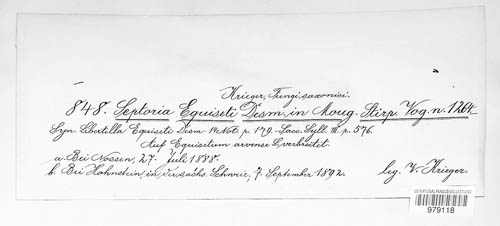 Krieger, Fungi saxonici.
848. Septoria Equiseti Desm. in Moug. Stirp. Vog. n. 1264.
Syn. Libertella Equiseti Desm. Not. p. 179. Sacc. Syll. III. p. 576.
Auf Equisetum arvense L. verbreitet.
a. Bei Nossen, 27. Juli 1888.
b. Bei Hohnstein, in der sächs. Schweiz, 7. September 1892. leg. W. Krieger.
US NATIONAL FUNGUS COLLECTIONS
979118